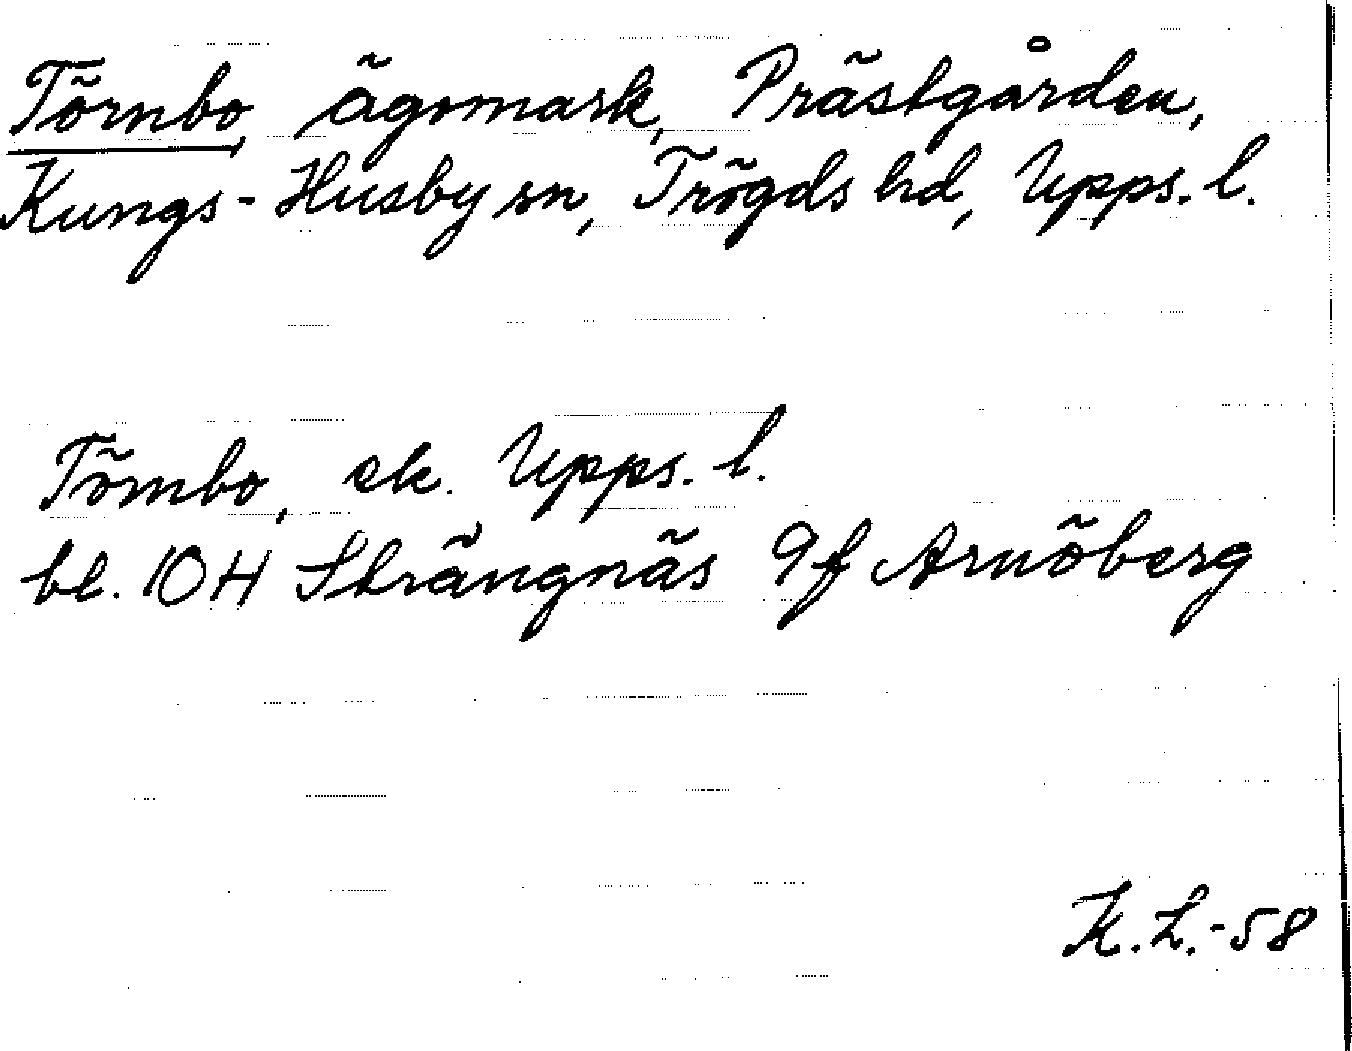 Törnbo, ägomark, Prästgården,
Kungs-Husby sn, Trögds hd, Upps. l.
Tömbo, ek. Upps. l.
bl. 10H Strängnäs 9f Arnöberg
K.L.-58